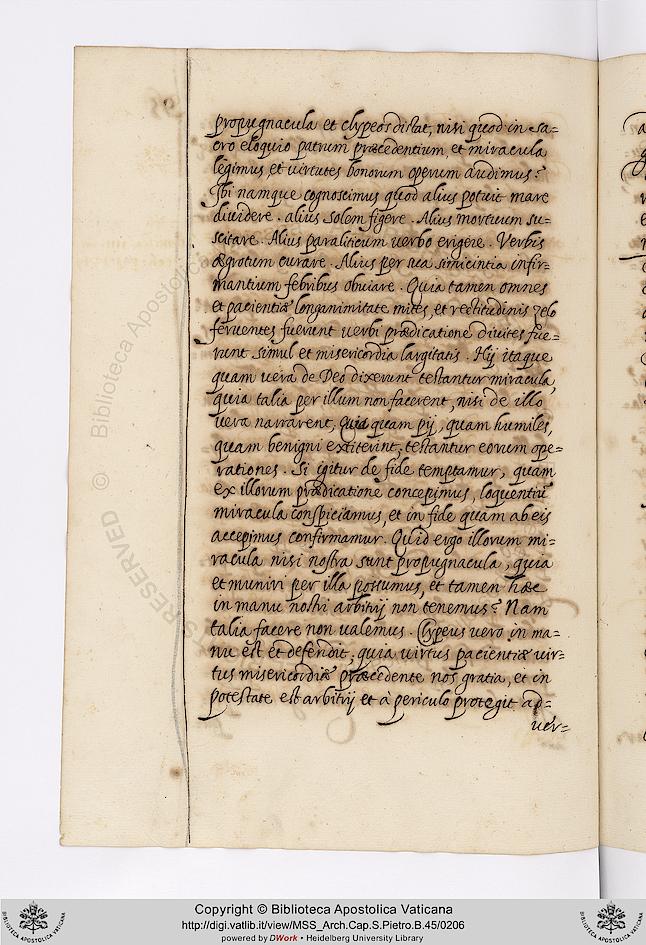 propugnacula et clypeos dictat, nisi quod in sa=
cro eloquio patrum præcedentium, et miracula
legimus et virtutes bonorum operum audimus?
Ibi namque cognoscimus quod alius potuit mare
dividere. alius solem figere. Alius mortuum su=
scitare. Alius paraliticum verbo erigere. Verbis
ægrotum curare. Alius per sua simicintia infir=
mantium febribus obuiare. Quia tamen omnes
et pacientiæ longanimitate mites, et rectitudinis zelo
feruentes fuerunt uerbi prædicatione diuites fue=
runt simul et misericordia largitatis. Hij itaque
quam uera de Deo dixerunt testantur miracula,
quia talia per illum non facerent, nisi de illo
uera narrarent, quam pij, quam humiles,
quam benigni extiterint, testantur eorum ope=
rationes. Si igitur de fide temptamur, quam
ex illorum prædicatione concepimus, loquentiũ
miracula conspiciamus, et in fide quam ab eis
accepimus confirmamur. Quid ergo illorum mi=
racula nisi nostra sunt propugnacula, quia
et muniri per illa possumus, et tamen hæc
in manu nostri arbitrij non tenemus? Nam
talia facere non ualemus. Clypeus uero in ma=
nu est et defendit, quia uirtus pacientiæ uir=
tus misericordiæ præcedente nos gratia, et in
potestate est arbitrij et à periculo protegit. ad=
uer=
RESERVED © Biblioteca Apostolica
Copyright © Biblioteca Apostolica Vaticana
http://digi.vatlib.it/view/MSS_Arch.Cap.S.Pietro.B.45/0206
powered by DWork • Heidelberg University Library